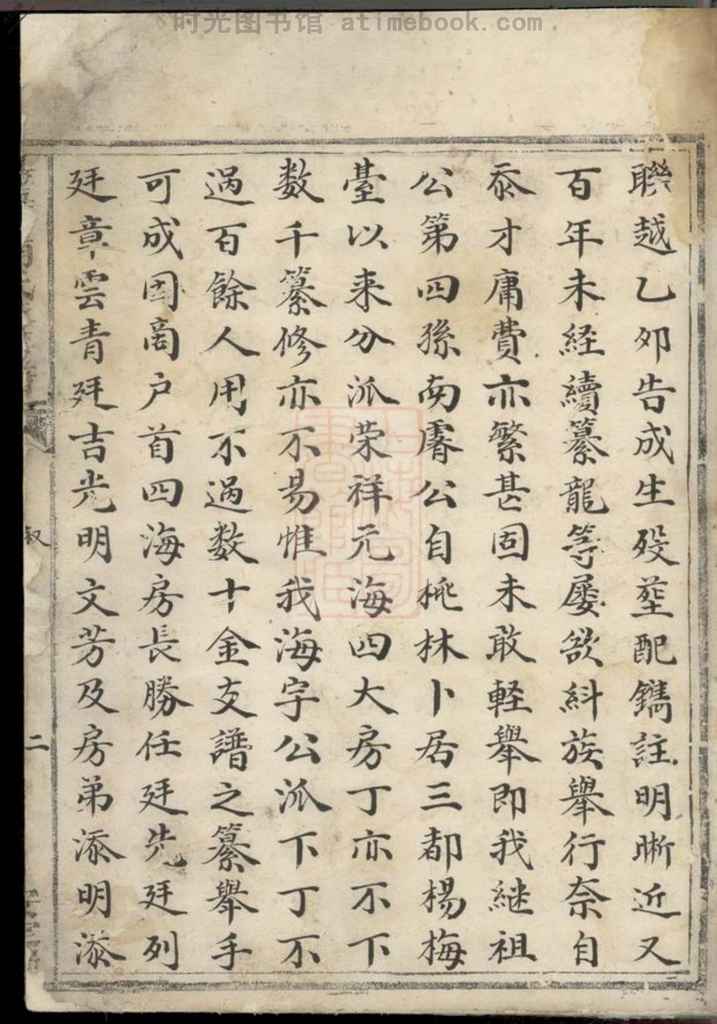 时光图书馆 atimebook.com
聮越乙夘告成生殁塟配鐫註明晰近又
百年未経續纂龍等屡欲糾族舉行奈自
忝才庸費亦繁甚固未敢軽舉即我継祖
公第四孫南㕡公自桃林卜居三都楊梅
臺以来分派荣祥元海四大房丁亦不下
数千纂修亦不易惟我海字公派下丁不
過百餘人用不過数十金支譜之纂舉手
可成因啇户首四海房長勝任廷先廷列
廷章雲青廷吉光明文芳及房弟添明添
二